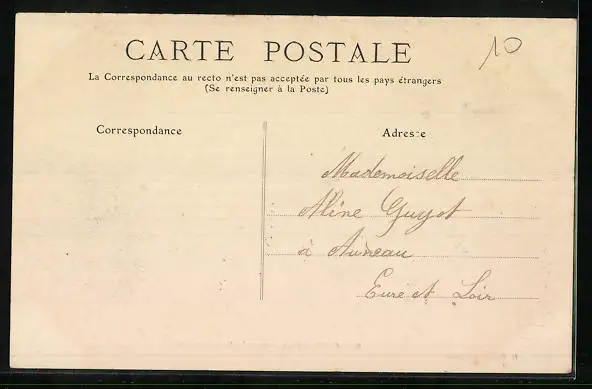 CARTE POSTALE
10
La Correspondance au recto n'est pas acceptée par tous les pays étrangers
(Se renseigner à la Poste)
Correspondance
Adresse
Mademoiselle
Aline Guyot
à Auneau
Eure et Loir